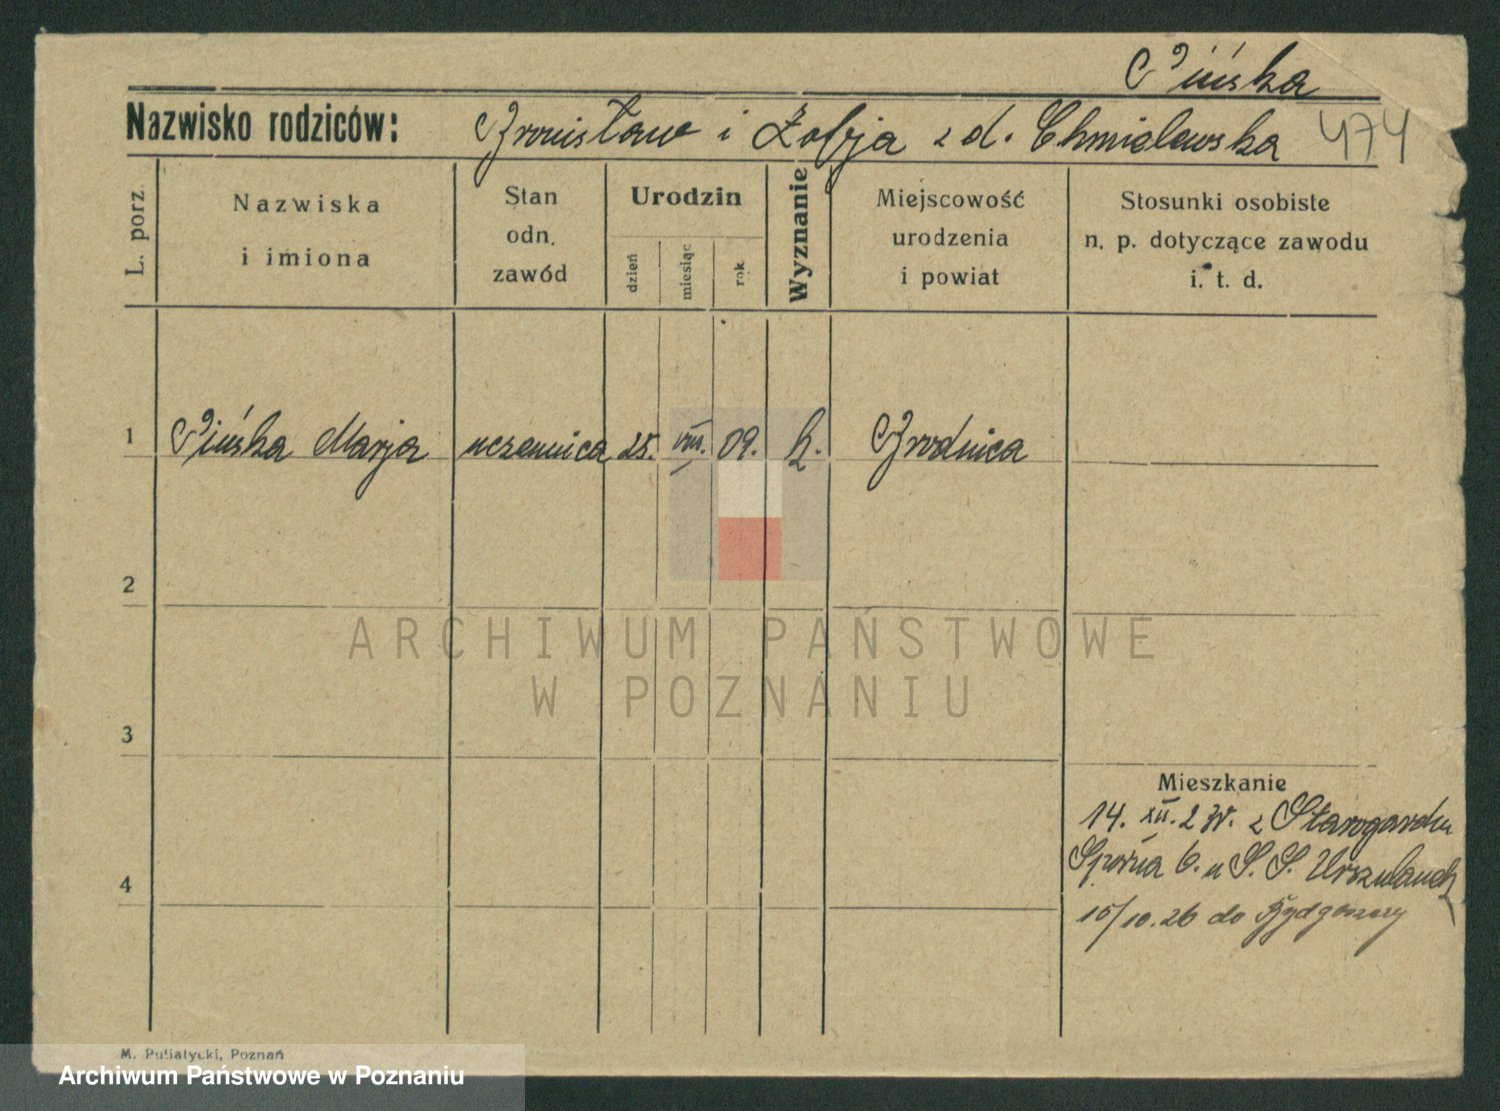 Pińska
Nazwisko rodziców: Bronisław i Zofja z d. Chmielewska 474
L. porz.
Nazwiska i imiona
Stan odn. zawód
Urodzin
dzień
miesiąc
rok
Wyznanie
Miejscowość urodzenia i powiat
Stosunki osobiste n. p. dotyczące zawodu i. t. d.
1 Pińska Marja uczennica 25. VIII. 09. k. Brodnica
2
3
4
Mieszkanie
14. XII. z Starogardu
Spokojna 6. u S. S. Urszulanek
15/10.26 do Bydgoszczy
M. Putiatycki, Poznań
ARCHIWUM PAŃSTWOWE
W POZNANIU
Archiwum Państwowe w Poznaniu